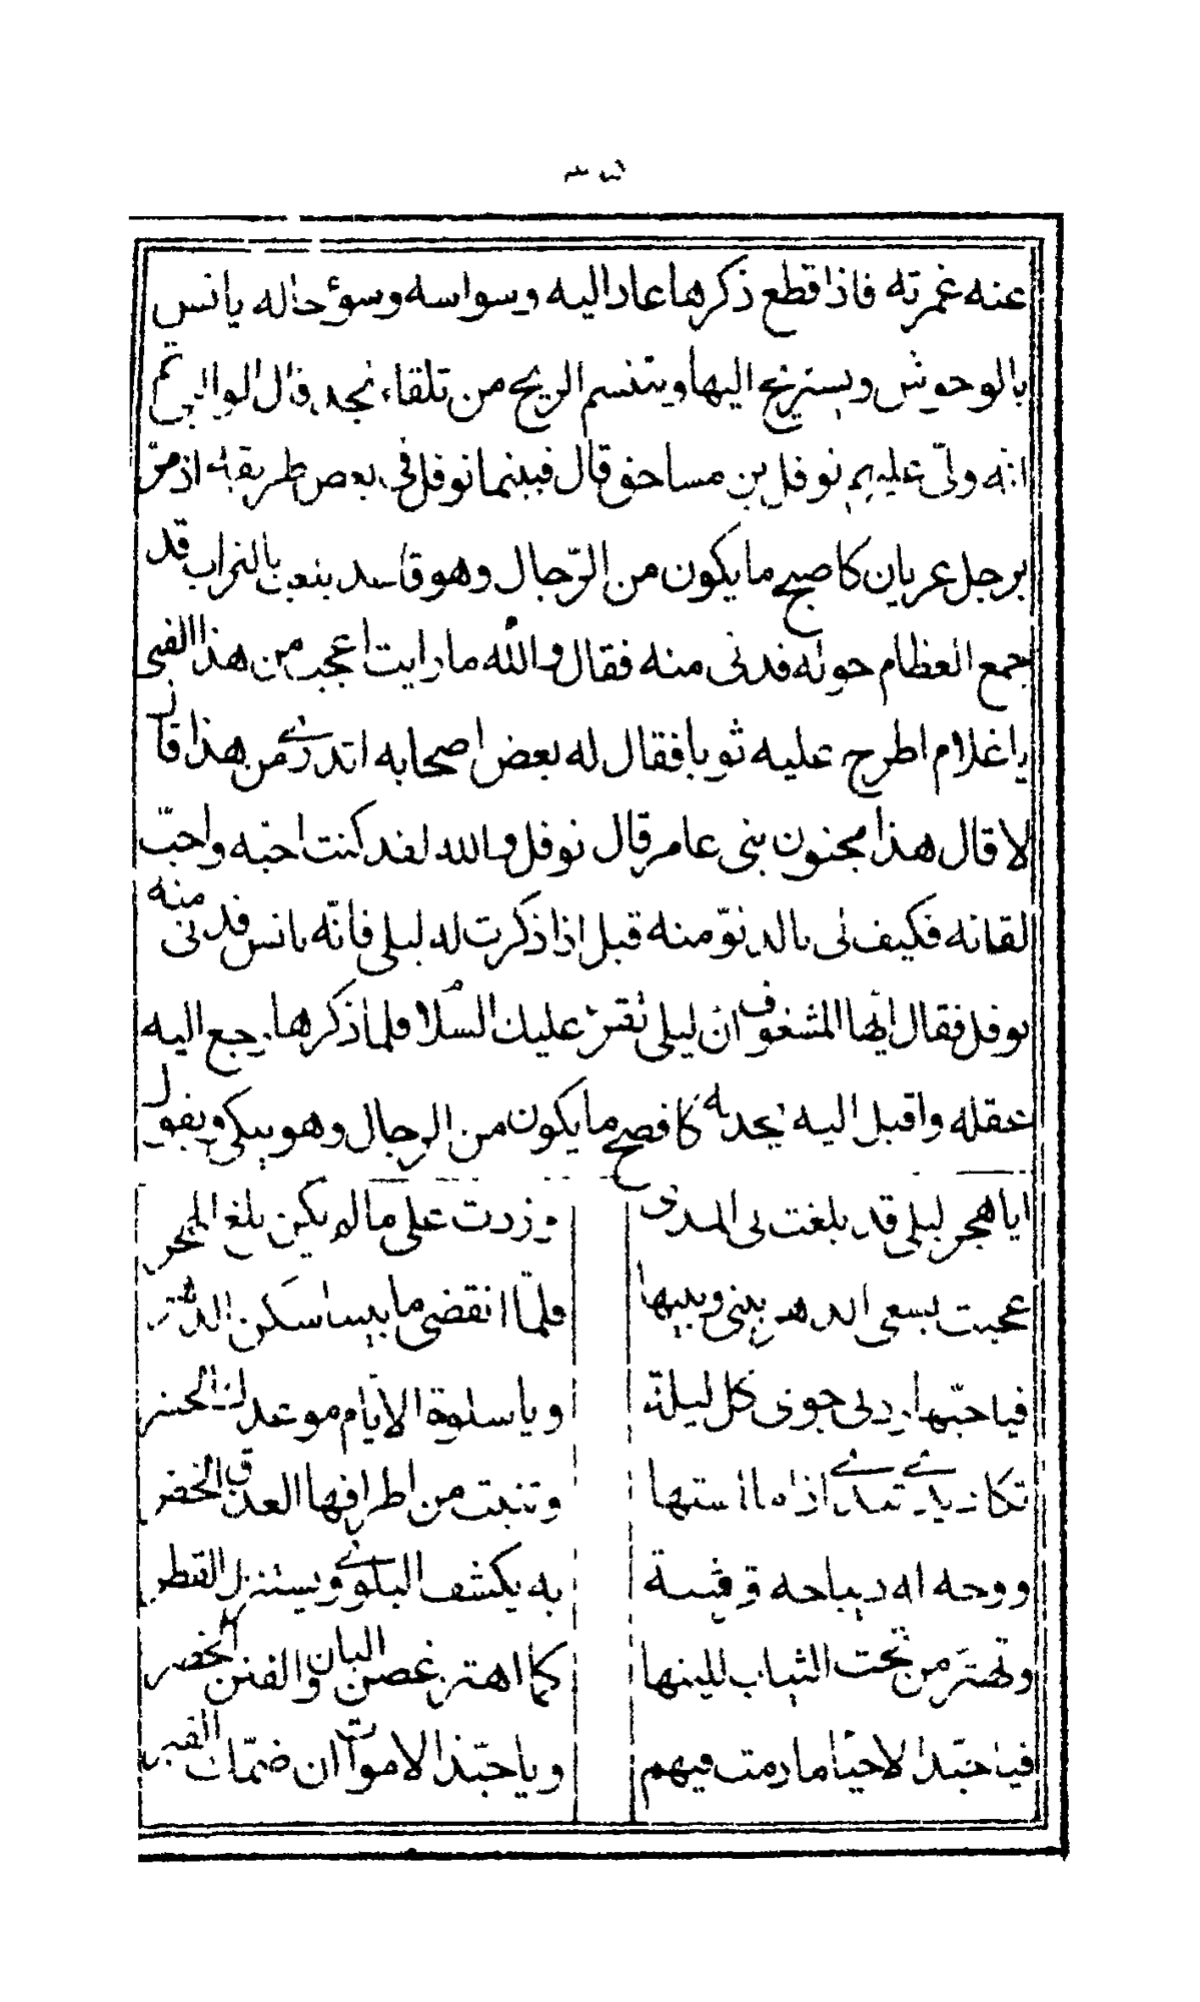 عنه غمرته فاذا قطع ذكرها عاد اليه وسواسه وسوء حاله يانس
بالوحوش ويستريح اليها ويتنسم الريح من تلقاء نجد قال الوالبي ثم
انه ولّى عليهم نوفل بن مساحق قال فبينما نوفل في بعض طريقه اذ مرّ
برجل عريان كاصبح ما يكون من الرّجال وهو قاعد يلعب بالتراب قد
جمع العظام حوله فدنى منه فقال والله ما رايت اعجب من هذا الفتى
يا غلام اطرح عليه ثوبا فقال له بعض اصحابه اتدرے من هذا قال
لا قال هذا مجنون بني عامر قال نوفل والله لقد كنت احبّه واحبّ
لقائه فكيف لى بالدنوّ منه قيل اذا ذكرت له ليلى فانّه يانس فدنى منه
نوفل فقال ايّها المشغوف انّ ليلى تقرئ عليك السّلام فلما ذكرها رجع اليه
عقله واقبل اليه يحدثه كافصح ما يكون من الرجال وهو يبكي ويقول
ايا هجر ليلى قد بلغت بى المدى وزدت على ما لم يكن بلغ الهجر
عجبت لسعى الدهر بينى وبينها فلمّا انقضى ما بيننا سكن الدّهر
فيا حبّها زدنى جوى كل ليلة ويا سلوة الايّام موعدك الحشر
تكاد يدے تندے اذا ما لمستها وتنبت من اطرافها الورق الخضر
ووجه له ديباجة قرشية به يكشف البلوے ويستنزل القطر
وتهتز من تحت الثياب للينها كما اهتز غصن البان والفنن الخضر
فيا حبّذا الاحياء ما دمت فيهم ويا حبّذا الاموات ان ضمّك القبر